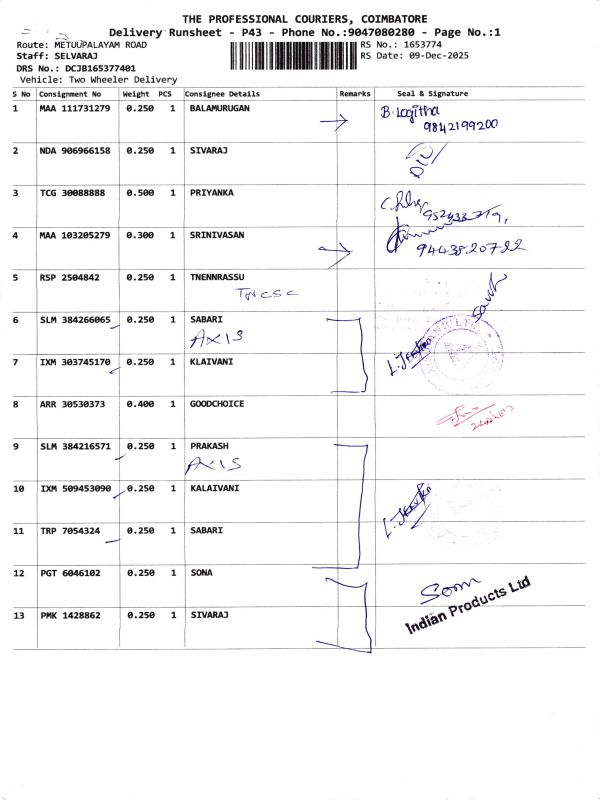 THE PROFESSIONAL COURIERS, COIMBATORE
Delivery Runsheet - P43 - Phone No.:9047080280 - Page No.:1
Route: METUUPALAYAM ROAD RS No.: 1653774
Staff: SELVARAJ RS Date: 09-Dec-2025
DRS No.: DCJB165377401
Vehicle: Two Wheeler Delivery
S No Consignment No Weight PCS Consignee Details Remarks Seal & Signature
1 MAA 111731279 0.250 1 BALAMURUGAN B. Logitha
9842199200
2 NDA 906966158 0.250 1 SIVARAJ
3 TCG 30088888 0.500 1 PRIYANKA
4 MAA 103205279 0.300 1 SRINIVASAN
5 RSP 2504842 0.250 1 TNENNRASSU
TNCSC
6 SLM 384266065 0.250 1 SABARI
AXIS
7 IXM 303745170 0.250 1 KLAIVANI
8 ARR 30530373 0.400 1 GOODCHOICE
9 SLM 384216571 0.250 1 PRAKASH
AXIS
10 IXM 509453090 0.250 1 KALAIVANI
11 TRP 7054324 0.250 1 SABARI
12 PGT 6046102 0.250 1 SONA
Indian Products Ltd
13 PMK 1428862 0.250 1 SIVARAJ